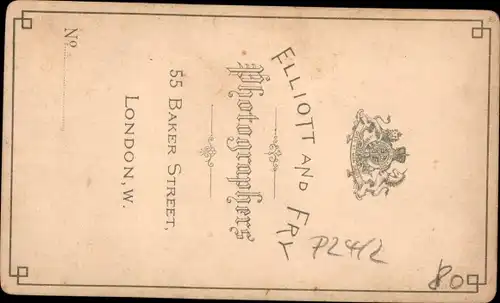 ELLIOTT AND FRY
Photographers
55 BAKER STREET,
LONDON, W.
No.
P24/2
80